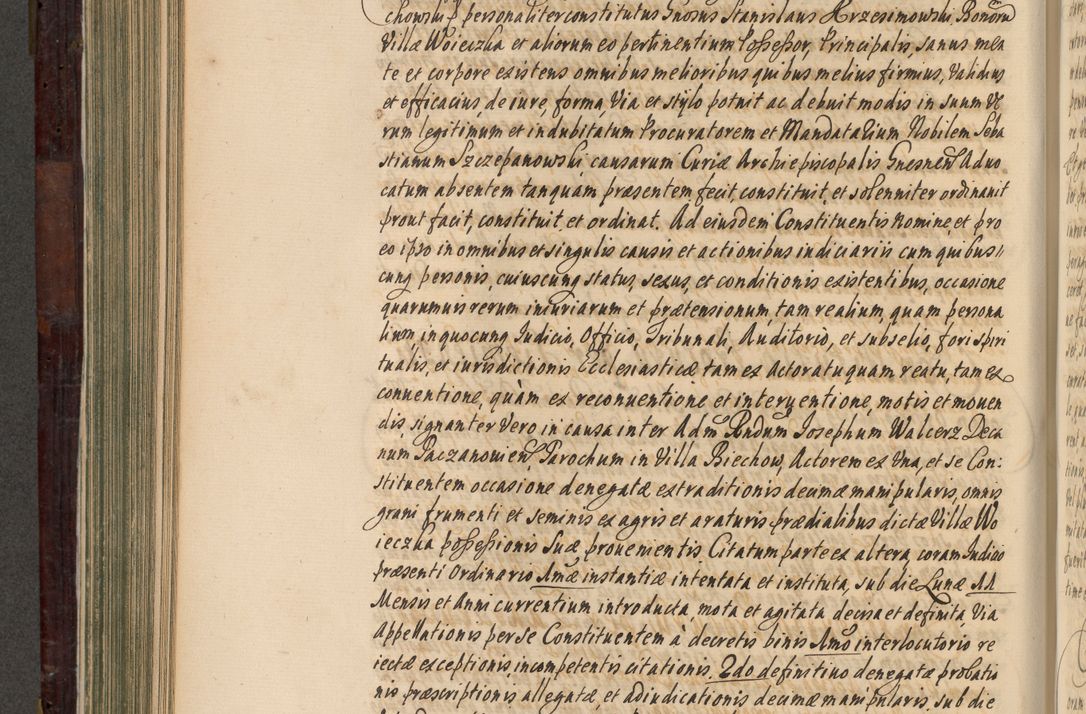 chowski personaliter constitutus Gnosus Stanislaus Krzesimowski, Bonorũ
Villæ Woieczka et aliorum eo pertinentium Possessor, Principalis, sanus men
te et corpore existens omnibus melioribus quibus melius firmius, validius
et efficacius, de iure, forma, via et stylo potuit ac debuit modis in suum Ve
rum legitimum et indubitatum Procuratorem et Mandatarium Nobilem Seba
stianum Szczepanowski, causarum Curiæ Archiepiscopalis Gnesnen Advo
catum absentem tanquam præsentem fecit, constituit, et solenniter ordinavit
prout facit, constituit, et ordinat. Ad eiusdem Constituentis nomine, et pro
eo ipso in omnibus et singulis causis et actionibus iudiciariis cum quibus
cunq personis, cuiuscunq status, sexus, et conditionis existentibus, occasione
quarumvis rerum iniuriarum et prætensionum, tam realium, quam persona
lium, in quocunq Iudicio, Officio, Tribunali, Auditorio, et subselio, fori spiri
tualis, et iurisdictionis Ecclesiasticæ tam ex Actoratu quam reatu, tam ex
conventione, quàm ex reconventione et interventione, motis et moven
dis, signanter vero in causa inter Adm Rndum Josephum Walcerz Deca
num Paczanovien, Parochum in Villa Biechow, Actorem ex una, et se Con:
stituentem occasione denegatæ extraditionis decimæ manipularis, omnis
grani frumenti et seminis ex agris et araturis prædialibus dictæ Villæ Wo
ieczka possessionis suæ provenientis Citatum parte ex altera, coram Iudicio
præsenti Ordinario Amæ instantiæ intentata et instituta, sub die Lunæ 11
Mensis et Anni currentium introducta, mota et agitata decisa et definita, Via
Appellationis per se Constituentem à decretis binis Amo interlocutorio re
iectæ exceptionis, incompetentis citationis. 2do definitivo denegatæ probatio
nis præscriptionis allegatæ, et adiudicationis decimæ manipularis, sub die